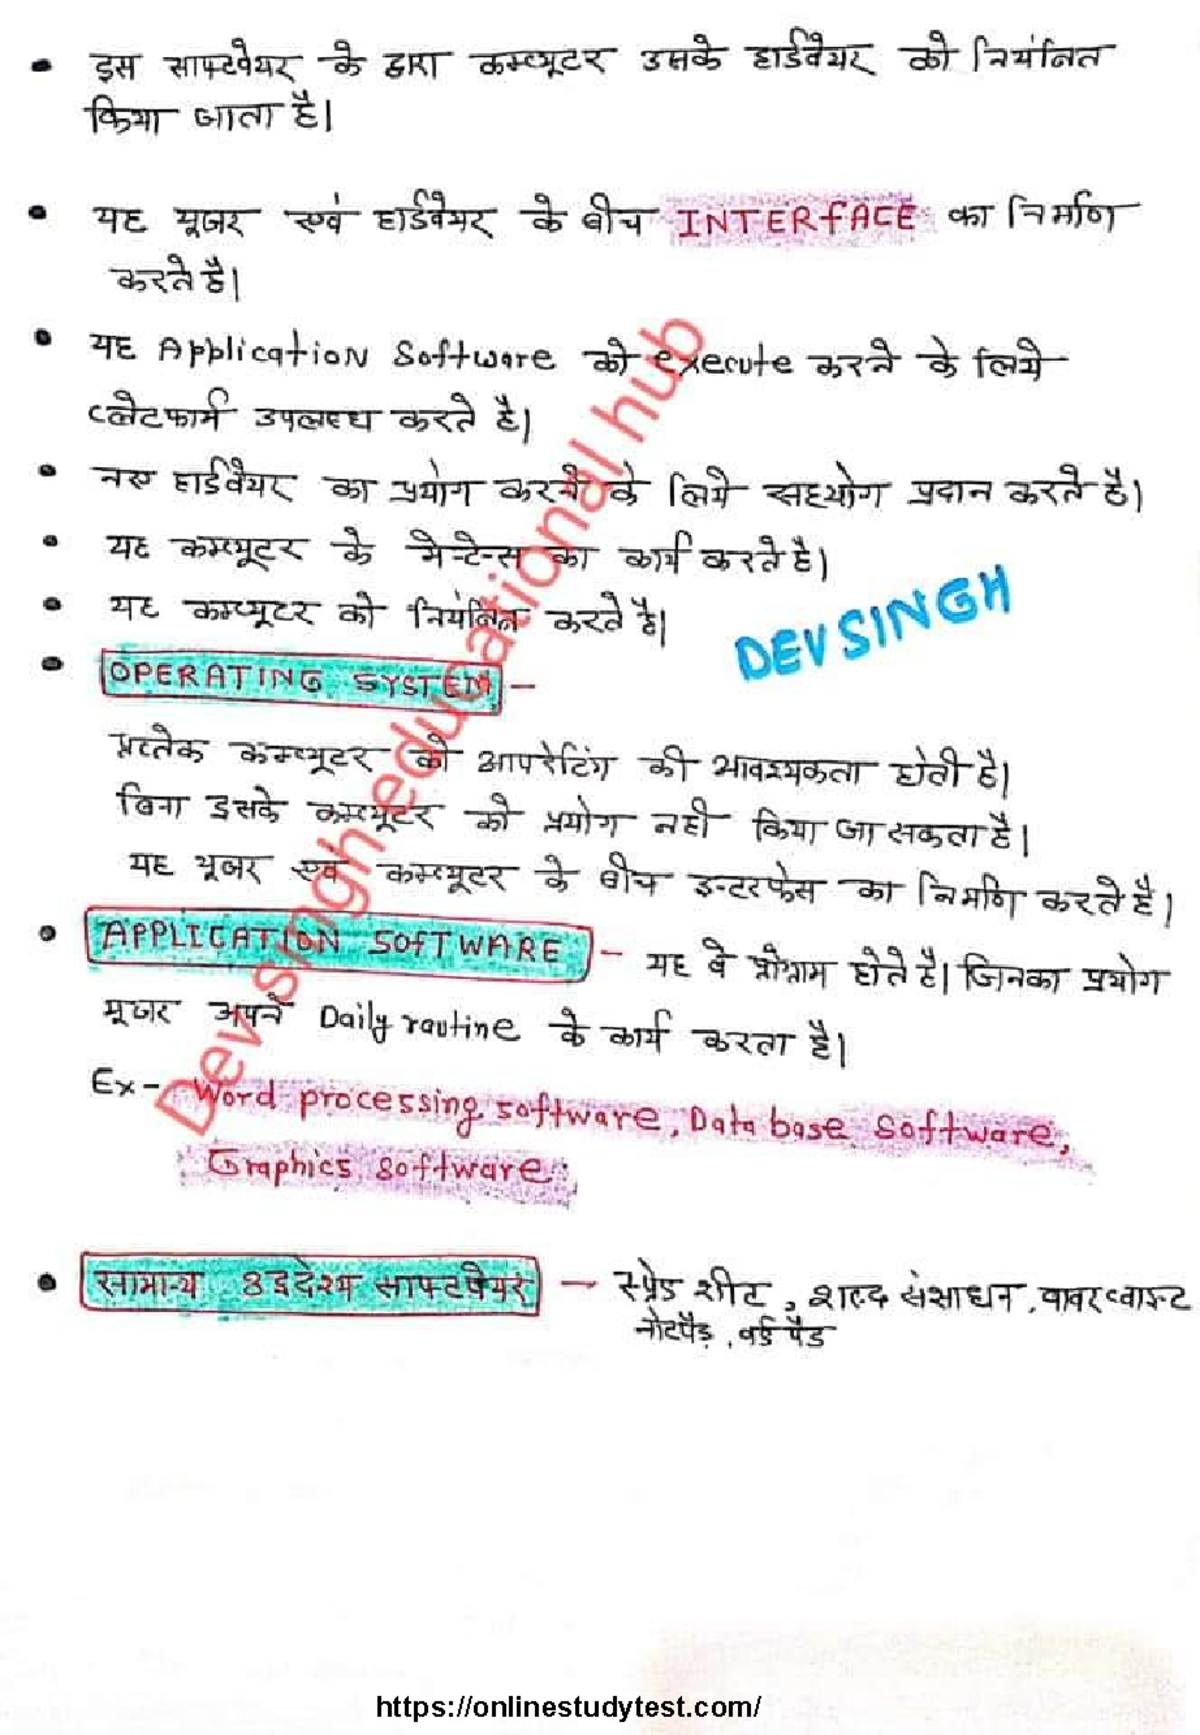 • इस साफ्टवेयर के द्वारा कम्प्यूटर उसके हार्डवेयर को नियंत्रित
किया जाता है।
• यह यूजर एवं हार्डवेयर के बीच INTERFACE का निर्माण
करते है।
• यह Application Software को execute करने के लिये
प्लेटफार्म उपलब्ध करते है।
• नए हार्डवेयर का प्रयोग करने के लिये सहयोग प्रदान करते है।
• यह कम्प्यूटर के मेन्टेन्स का कार्य करते है।
• यह कम्प्यूटर को नियंत्रित करते है।
DEV SINGH
• OPERATING SYSTEM –
प्रत्येक कम्प्यूटर को आपरेटिंग की आवश्यकता होती है।
बिना इसके कम्प्यूटर को प्रयोग नही किया जा सकता है।
यह यूजर एवं कम्प्यूटर के बीच इन्टरफेस का निर्माण करते है।
• APPLICATION SOFTWARE – यह वे प्रोग्राम होते है। जिनका प्रयोग
यूजर अपने Daily rautine के कार्य करता है।
Ex- Word processing software, Data base software,
Graphics software
• सामान्य उद्देश्य साफ्टवेयर – स्प्रेड शीट, शब्द संसाधन, पावर प्वाइन्ट
नोटपैड, वर्ड पैड
Dev singh educational hub
https://onlinestudytest.com/